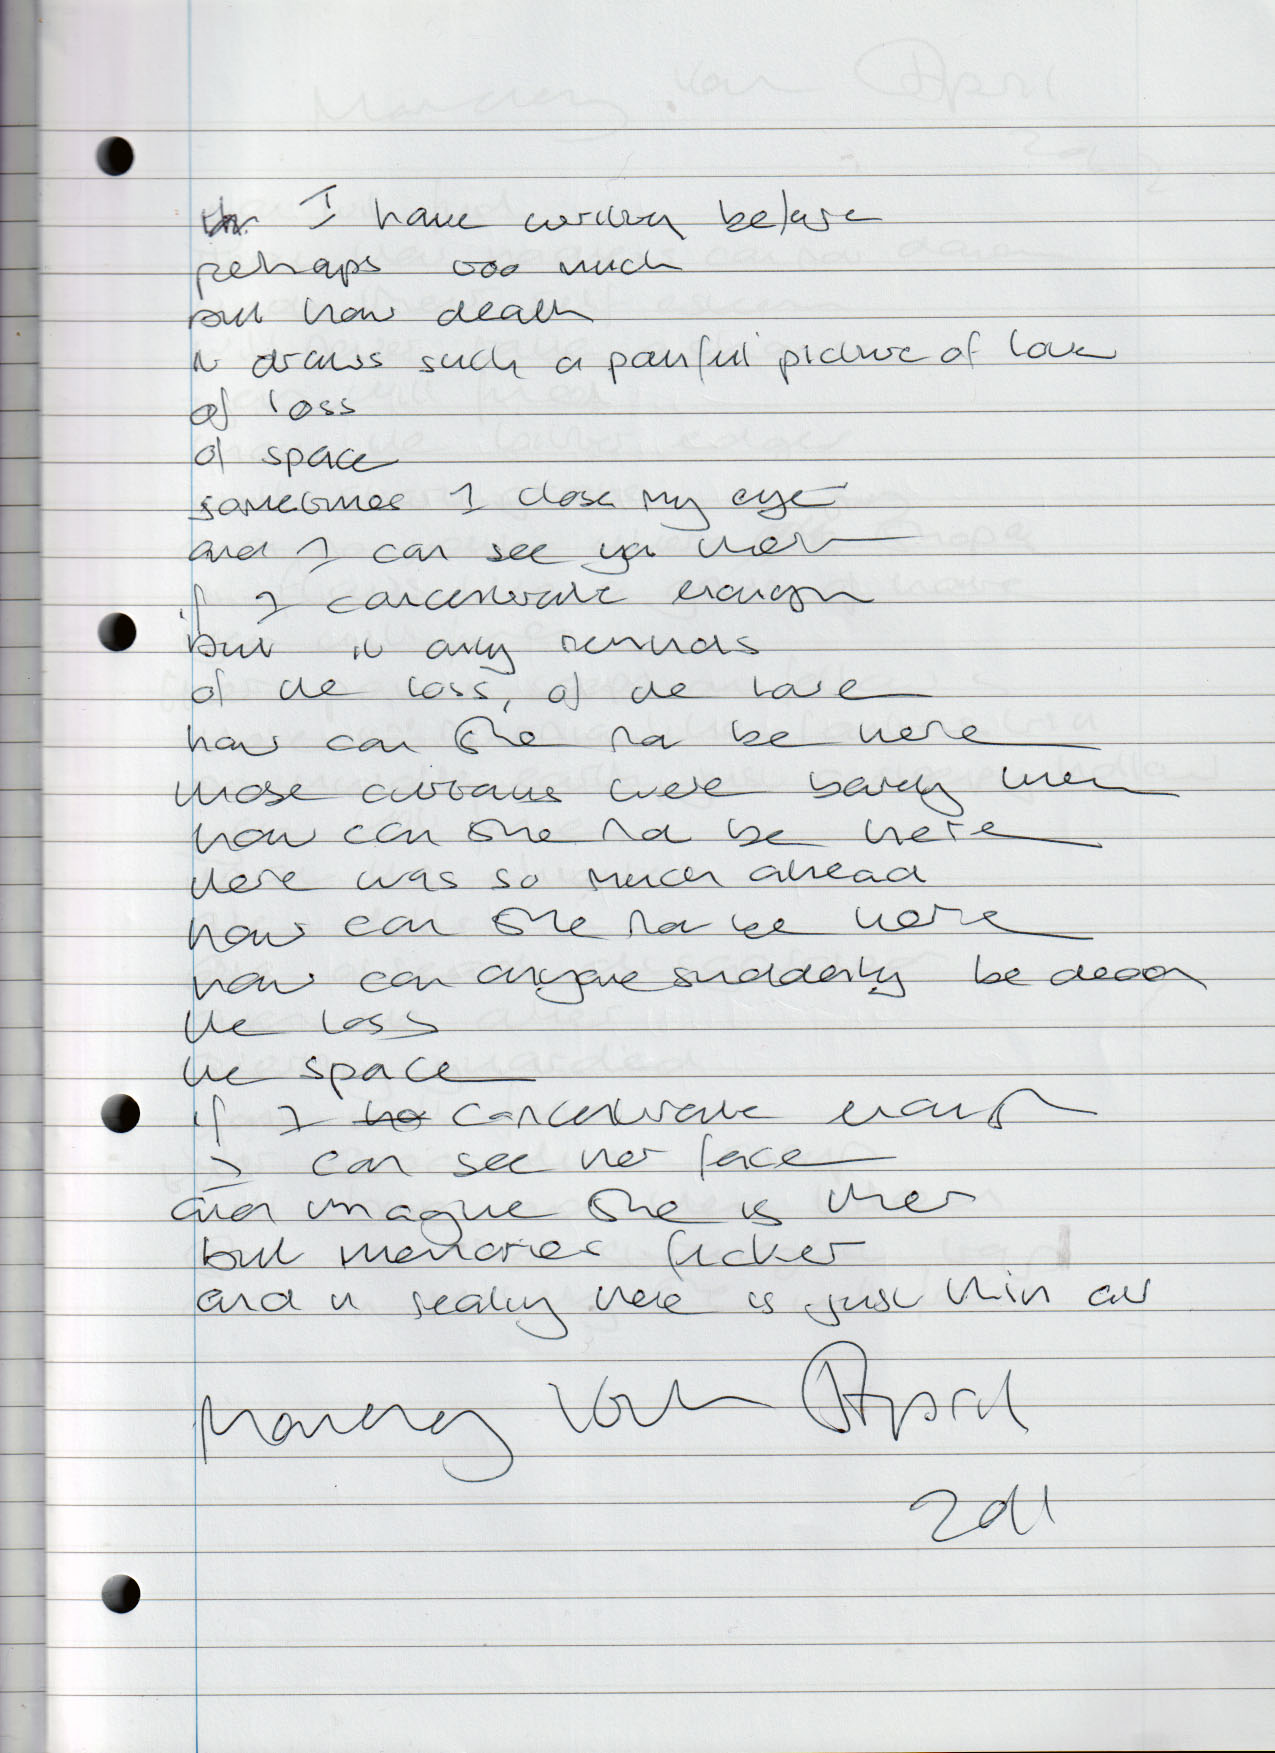 I have written before
perhaps too much
but how death
it draws such a painful picture of love
of loss
of space
sometimes I close my eye
and I can see you there
if I concentrate enough
but it only reminds
of the loss, of the love
how can she not be here
those curtains were barely
how can she not be here
there was so much ahead
how can she not be here
how can anyone suddenly be dead
the loss
the space
if I concentrate enough
I can see her face
and imagine she is there
but memories flicker
and in reality there is just thin air
Monday April
2011